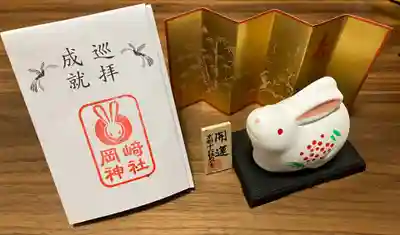 巡拝
成就
岡﨑
神社
開運